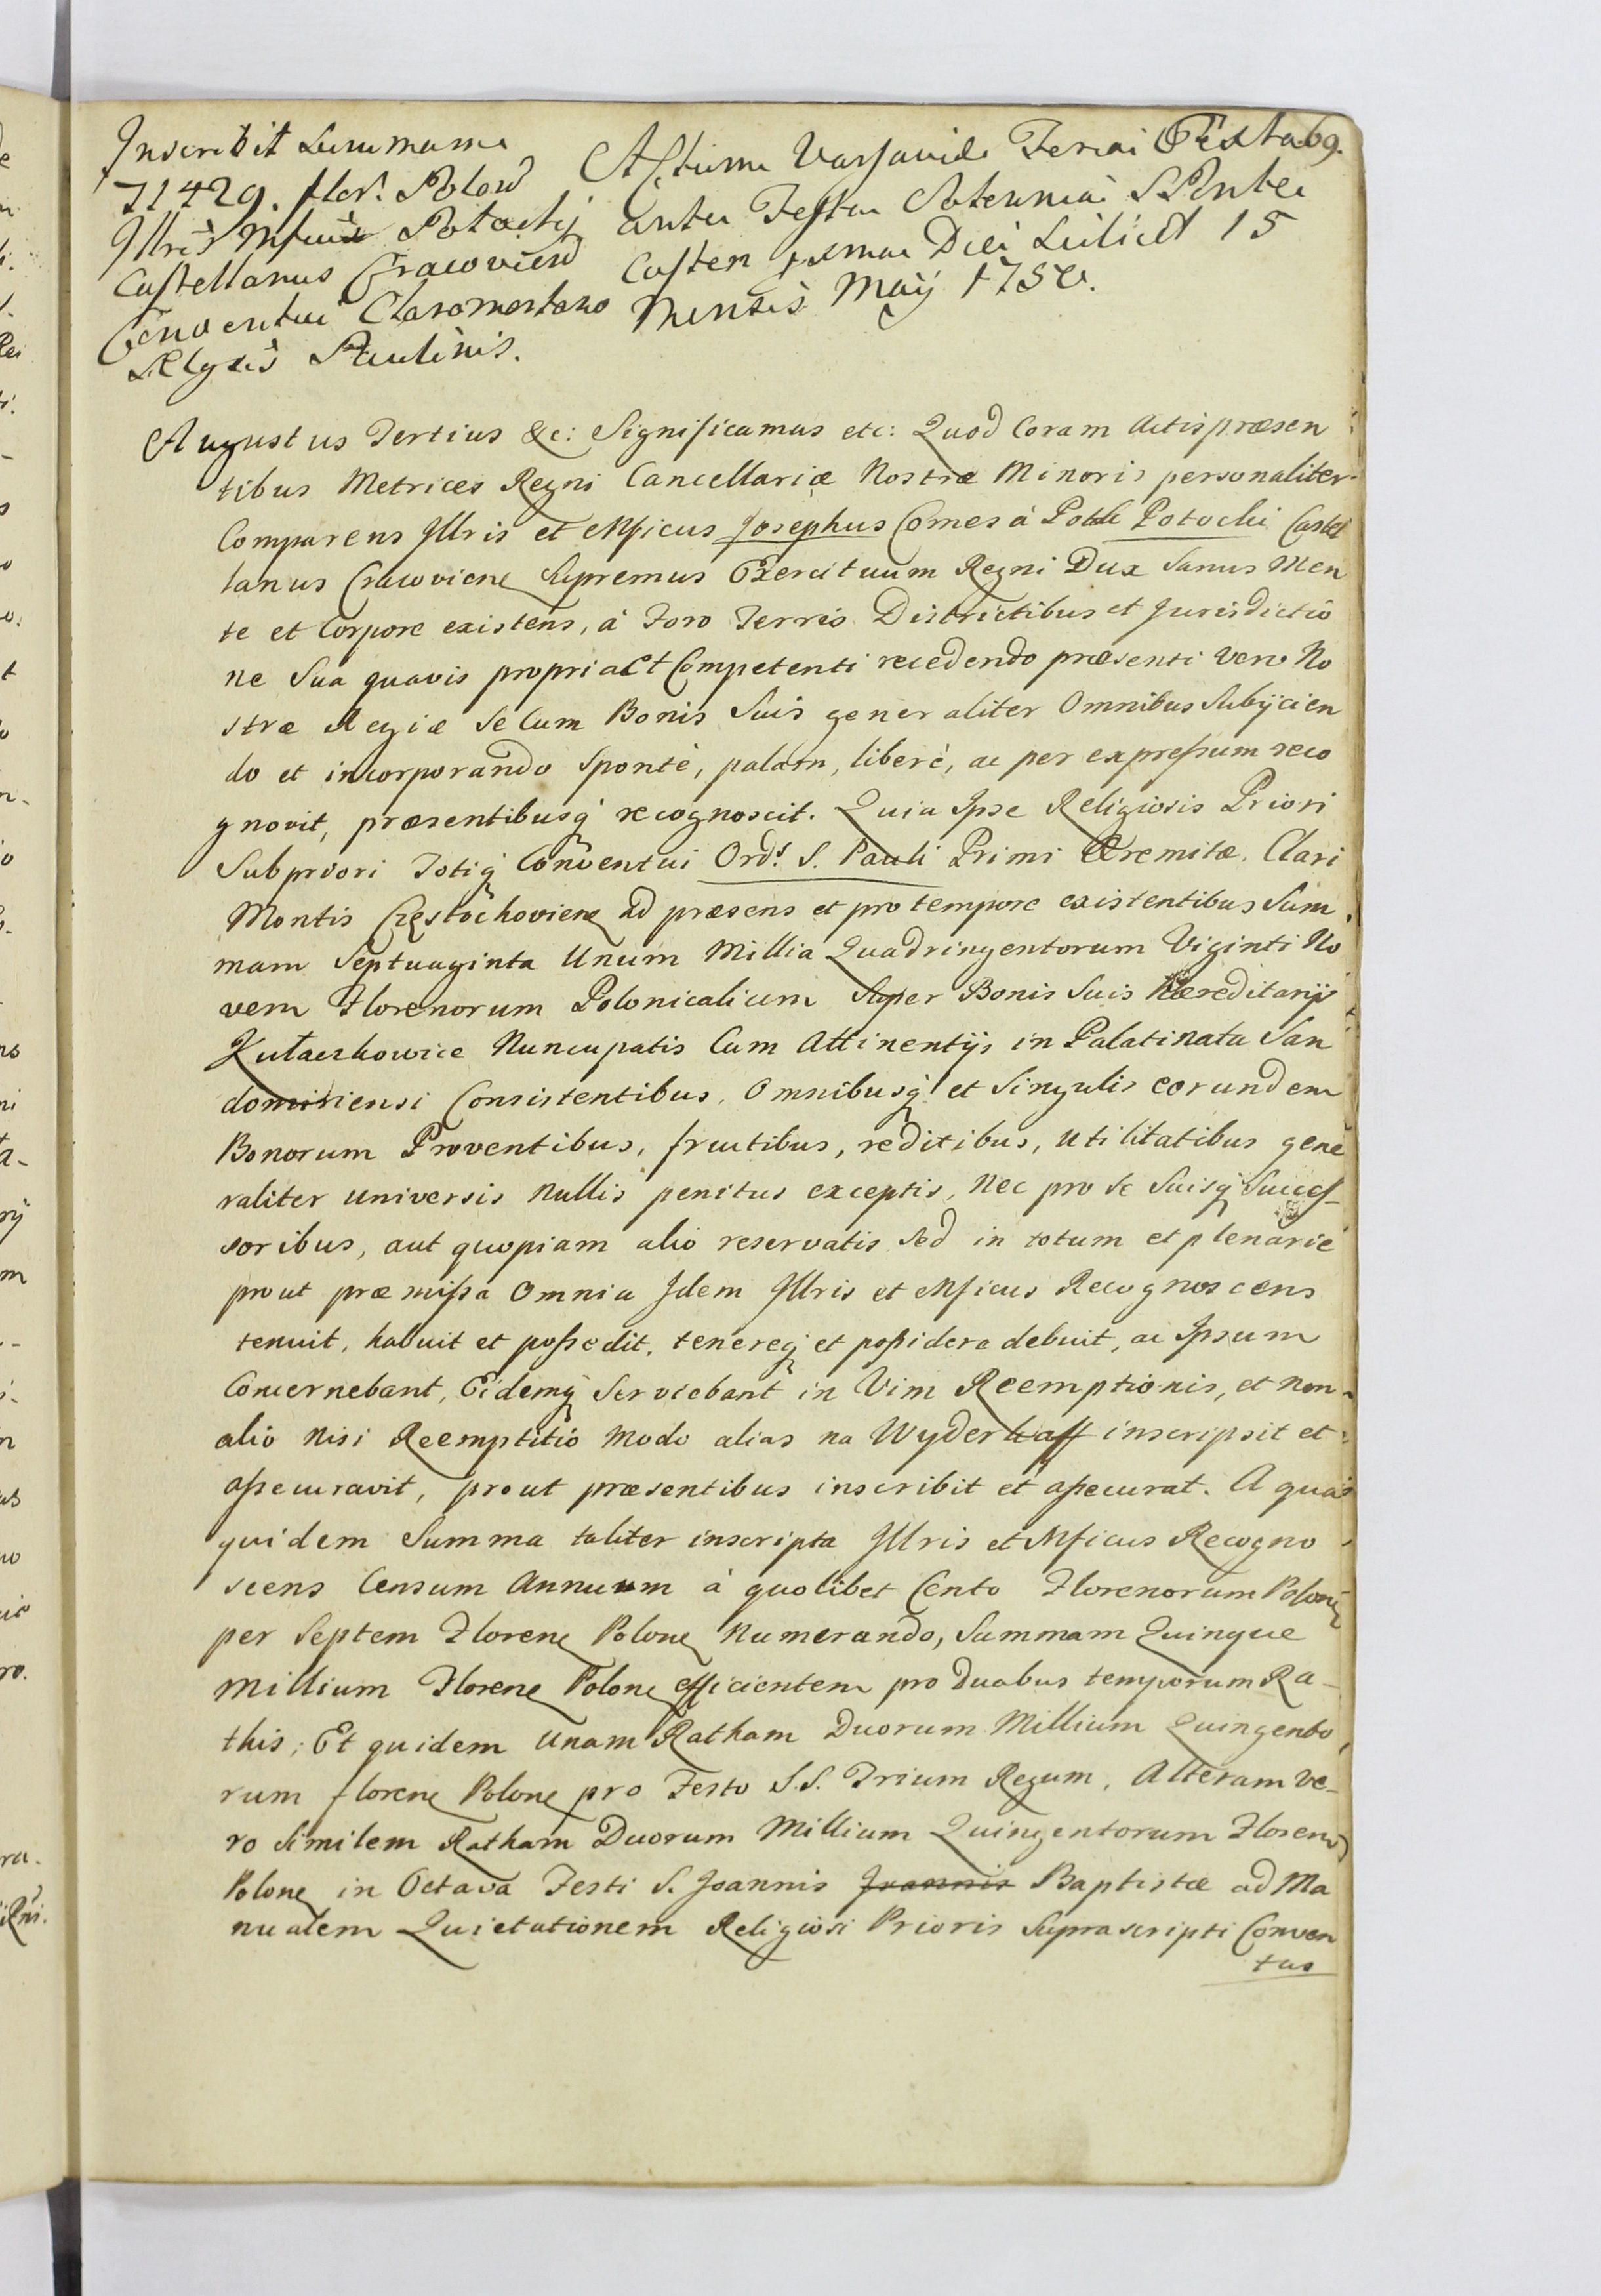 69.
Inscribit Summam
71429. flor. Polon
Illris Mficus Potocky
Castellanus Cracovien
Conventui Claromontano
Religiosis Paulinis.
Actum Varsaviae Feria Sexta
ante Festa Solennia S Pente
costen proxima Die Scilicet 15
Mensis Maij 1750.
Augustus Tertius &c: Significamus etc: Quod Coram Actis præsen
tibus Metrices Regni Cancellariæ Nostræ Minoris personaliter
Comparens Illris et Mficus Josephus Comes à Potok Potocki Castel
lanus Cracoviene Supremus Exercituum Regni Dux Sanus Men
te et Corpore existens, à Foro Terris Districtibus et Jurisdictio
ne Sua quavis propria et Competenti recedendo præsenti vero No
stræ Regiæ se Cum Bonis Suis generaliter Omnibus Subijcien
do et incorporando Sponte, palam, liberè, ac per expressum reco
gnovit, præsentibusq recognoscit. Quia Ipse Religiosis Priori
Subpriori Totiq Conventui Ord. S. Pauli Primi Eremitæ, Clari
Montis Częstochoviene ad præsens et pro tempore existentibus Sum
mam Septuaginta Unum Millia Quadringentorum Viginti No
vem Florenorum Polonicalium Super Bonis Suis Hæreditarijs
Kutaczkowice Nuncupatis Cum Attinentijs in Palatinatu San
domiriensi Consistentibus, Omnibusq et Singulis eorundem
Bonorum Proventibus, fructibus, reditibus, utilitatibus gene
raliter universis nullis penitus exceptis, Nec pro se Suisq Succes
soribus, aut quopiam alio reservatis sed in totum et plenariè
prout præmissa Omnia Idem Illris et Mficus Recognoscens
tenuit, habuit et possedit, tenereq et possidere debuit, ac Ipsum
Concernebant, Eidemq Serviebant in Vim Reemptionis, et non
alio nisi Reemptitio modo alias na Wyderkaff inscripsit et
assecuravit, prout præsentibus inscribit et assecurat. A qua
quidem Summa taliter inscripta Illris et Mficus Recogno
scens Censum Annuum à quolibet Cento Florenorum Polon
per Septem Florene Polone Numerando, Summam Quinque
Millium Florene Polone efficientem pro duabus temporum Ra-
this; Et quidem Unam Ratham Duorum Millium Quingento
rum florene Polone pro Festo S.S. Trium Regum, Alteram ve-
ro Similem Ratham Duorum Millium Quingentorum Floren
Polone in Octava Festi S. Joannis Joannis Baptistæ ad Ma
nualem Quietationem Religiosi Prioris Suprascripti Conven
tus